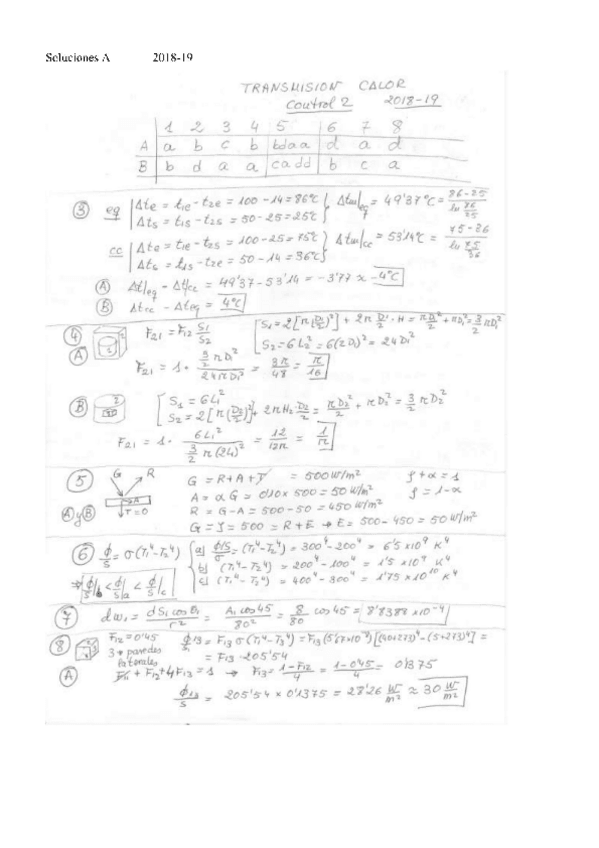 Soluciones A 2018-19
TRANSMISION CALOR
Control 2 2018-19
1 2 3 4 5 6 7 8
A a b c b bdaa d a d
B b d a a cadd b c a
③ eq | Δte = t1e - t2e = 100 - 14 = 86°C } Δtml eq = 49'37°C = 86-25 / ln 86/25
Δts = t1s - t2s = 50 - 25 = 25°C
cc | Δte = t1e - t2s = 100 - 25 = 75°C } Δtml cc = 53'14°C = 75-36 / ln 75/36
Δts = t1s - t2e = 50 - 14 = 36°C
Ⓐ Δt)eq - Δt)cc = 49'37 - 53'14 = -3'77 ≈ -4°C
Ⓑ Δtcc - Δteq = 4°C
④ F21 = F12 S1/S2 [ S1 = 2[π(D1/2)²] + 2π D1/2 · H = πD1²/2 + πD1² = 3/2 πD1²
S2 = 6L2² = 6(2D1)² = 24D1²
Ⓐ F21 = 1 · 3/2 πD1² / 24D1² = 3π/48 = π/16
Ⓑ [ S1 = 6L1²
S2 = 2[π(D2/2)²] + 2πH2 · D2/2 = πD2²/2 + πD2² = 3/2 πD2²
F21 = 1 · 6L1² / 3/2 π(2L1)² = 12/12π = 1/π
⑤ G R G = R + A + T = 500 W/m² ρ + α = 1
A = αG = 0'10 × 500 = 50 W/m² ρ = 1 - α
Ⓐ y Ⓑ T=0 R = G - A = 500 - 50 = 450 W/m²
G = J = 500 = R + E → E = 500 - 450 = 50 W/m²
⑥ ϕ/S = σ(T1⁴ - T2⁴) { a) ϕ/S/σ = (T1⁴ - T2⁴) = 300⁴ - 200⁴ = 6'5 × 10⁹ K⁴
b) (T1⁴ - T2⁴) = 200⁴ - 100⁴ = 1'5 × 10⁹ K⁴
⇒ ϕ/S)b < ϕ/S)a < ϕ/S)c c) (T1⁴ - T2⁴) = 400⁴ - 300⁴ = 1'75 × 10¹⁰ K⁴
⑦ dω1 = dS1 cos θ1 / r² = A1 cos 45 / 80² = 8/80 cos 45 = 8'8388 × 10⁻⁴
⑧ F12 = 0'45 ϕ13/S1 = F13 σ(T1⁴ - T3⁴) = F13 (5'67×10⁻⁸)[(40+273)⁴ - (5+273)⁴] =
3 → paredes laterales = F13 · 205'54
Ⓐ F11 + F12 + 4F13 = 1 → F13 = 1-F12 / 4 = 1-0'45 / 4 = 0'1375
ϕ13/S = 205'54 × 0'1375 = 28'26 W/m² ≈ 30 W/m²